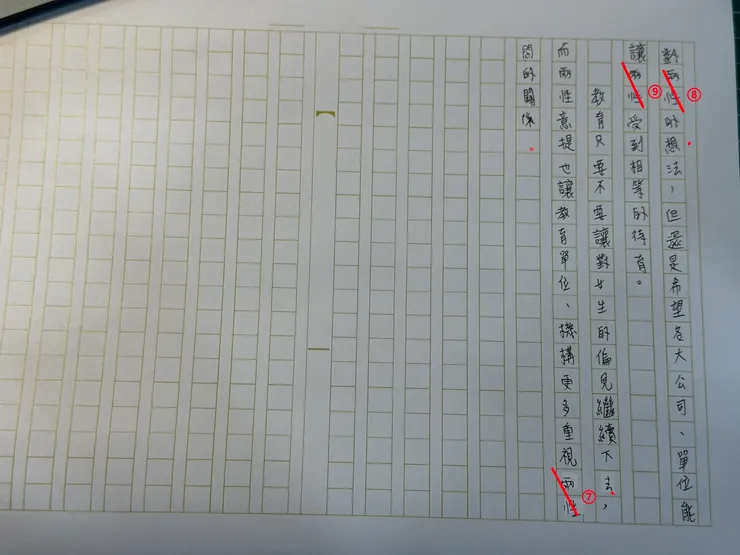 對兩性的想法，但還是希望各大公司、單位能
讓兩性受到相等的待育。
教育只要不要讓對女生的偏見繼續下去，
而兩性意提也讓教育單位、機構更多重視兩性
間的關係。
⑧
⑨
⑦